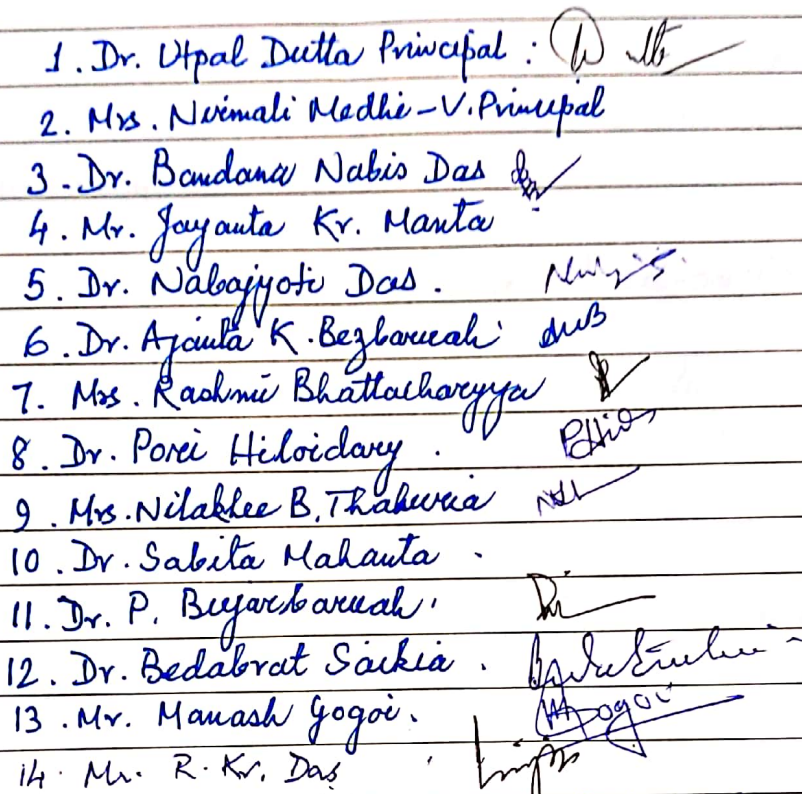 1. Dr. Utpal Dutta Principal :
2. Mrs. Nirmali Medhi - V. Principal
3. Dr. Bandana Nabis Das
4. Mr. Jayanta Kr. Manta
5. Dr. Nabajyoti Das.
6. Dr. Ajanta K. Bezbaruah
7. Mrs. Rashmi Bhattacharyya
8. Dr. Pori Hiloidary.
9. Mrs. Nilakhee B. Thakuria
10. Dr. Sabita Mahanta.
11. Dr. P. Bujarbaruah.
12. Dr. Bedabrat Saikia.
13. Mr. Manash Gogoi. Gogoi
14. Mr. R. Kr. Das